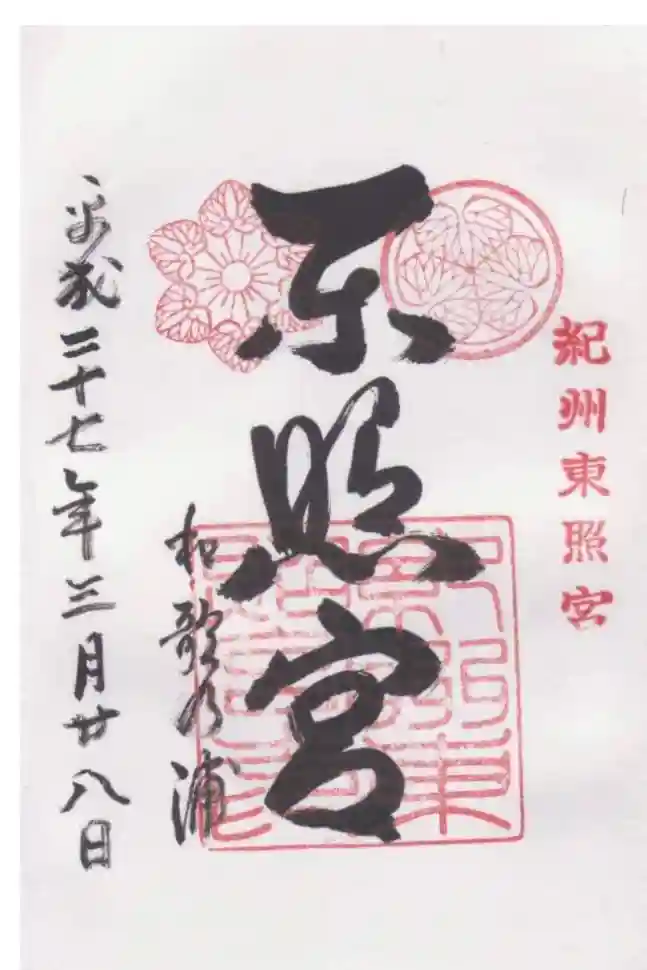 紀州東照宮
東照宮
和歌乃浦
平成二十七年三月廿八日